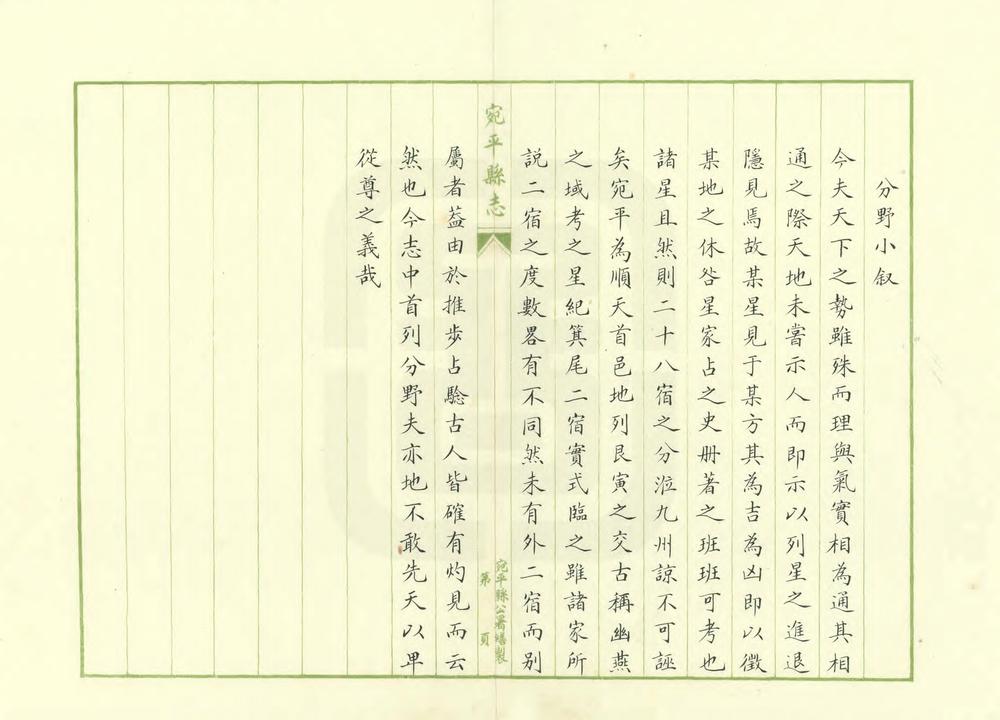 分野小叙
今夫天下之勢雖殊而理與氣實相為通其相
通之際天地未嘗示人而即示以列星之進退
隱見焉故某星見于某方其為吉為凶即以徵
某地之休咎星家占之史册著之班班可考也
諸星且然則二十八宿之分涖九州諒不可誣
矣宛平為順天首邑地列艮寅之交古稱幽燕
之域考之星紀箕尾二宿實式臨之雖諸家所
説二宿之度數畧有不同然未有外二宿而别
宛平縣志
宛平縣公署繕製
第 頁
屬者葢由於推步占騐古人皆確有灼見而云
然也今志中首列分野夫亦地不敢先天以卑
從尊之義哉